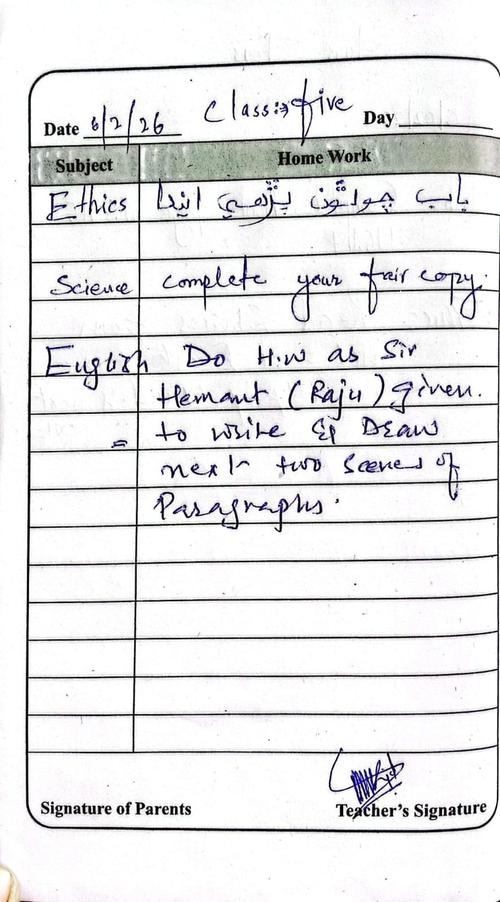 Date 6/2/26 Class:→ five Day
Subject Home Work
Ethics باب چوٿون پڙهي ايندا
Science complete your fair copy.
English Do H.w as Sir
Hemant (Raju) given.
= to write & Draw
next two Scenes of
Paragraphs.
Signature of Parents Teacher's Signature